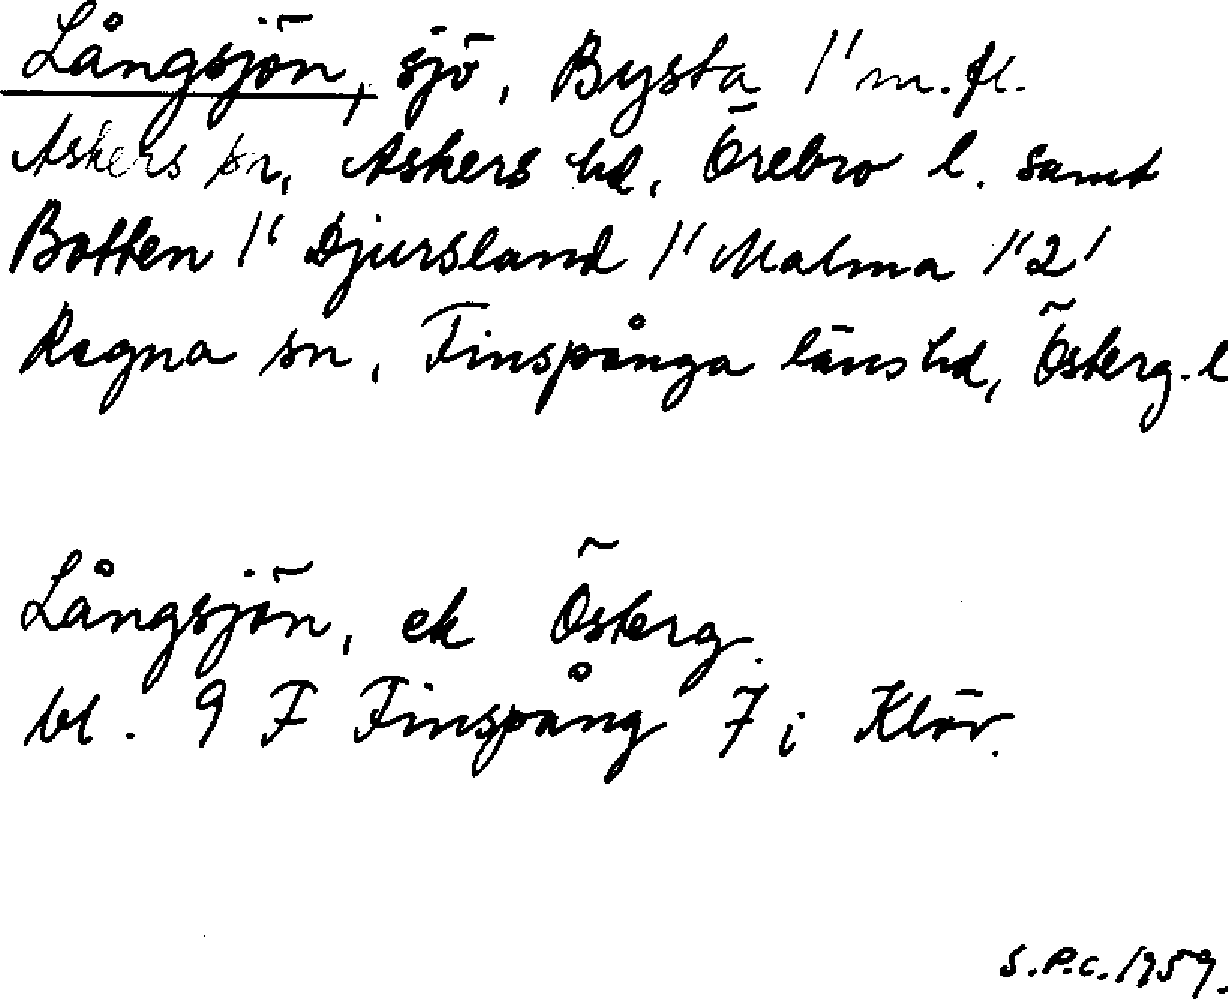 Långsjön, sjö, Bysta 1/1 m.fl.
Askers sn, Askers hd, Örebro l. samt
Botten 1/1 Djursland 1/1 Malma 1/1 2/
Regna sn, Finspånga läns hd, Österg. l
Långsjön, ek Österg.
bl. 9 F Finspång 7 i Klöv.
S.P.C. 1959.